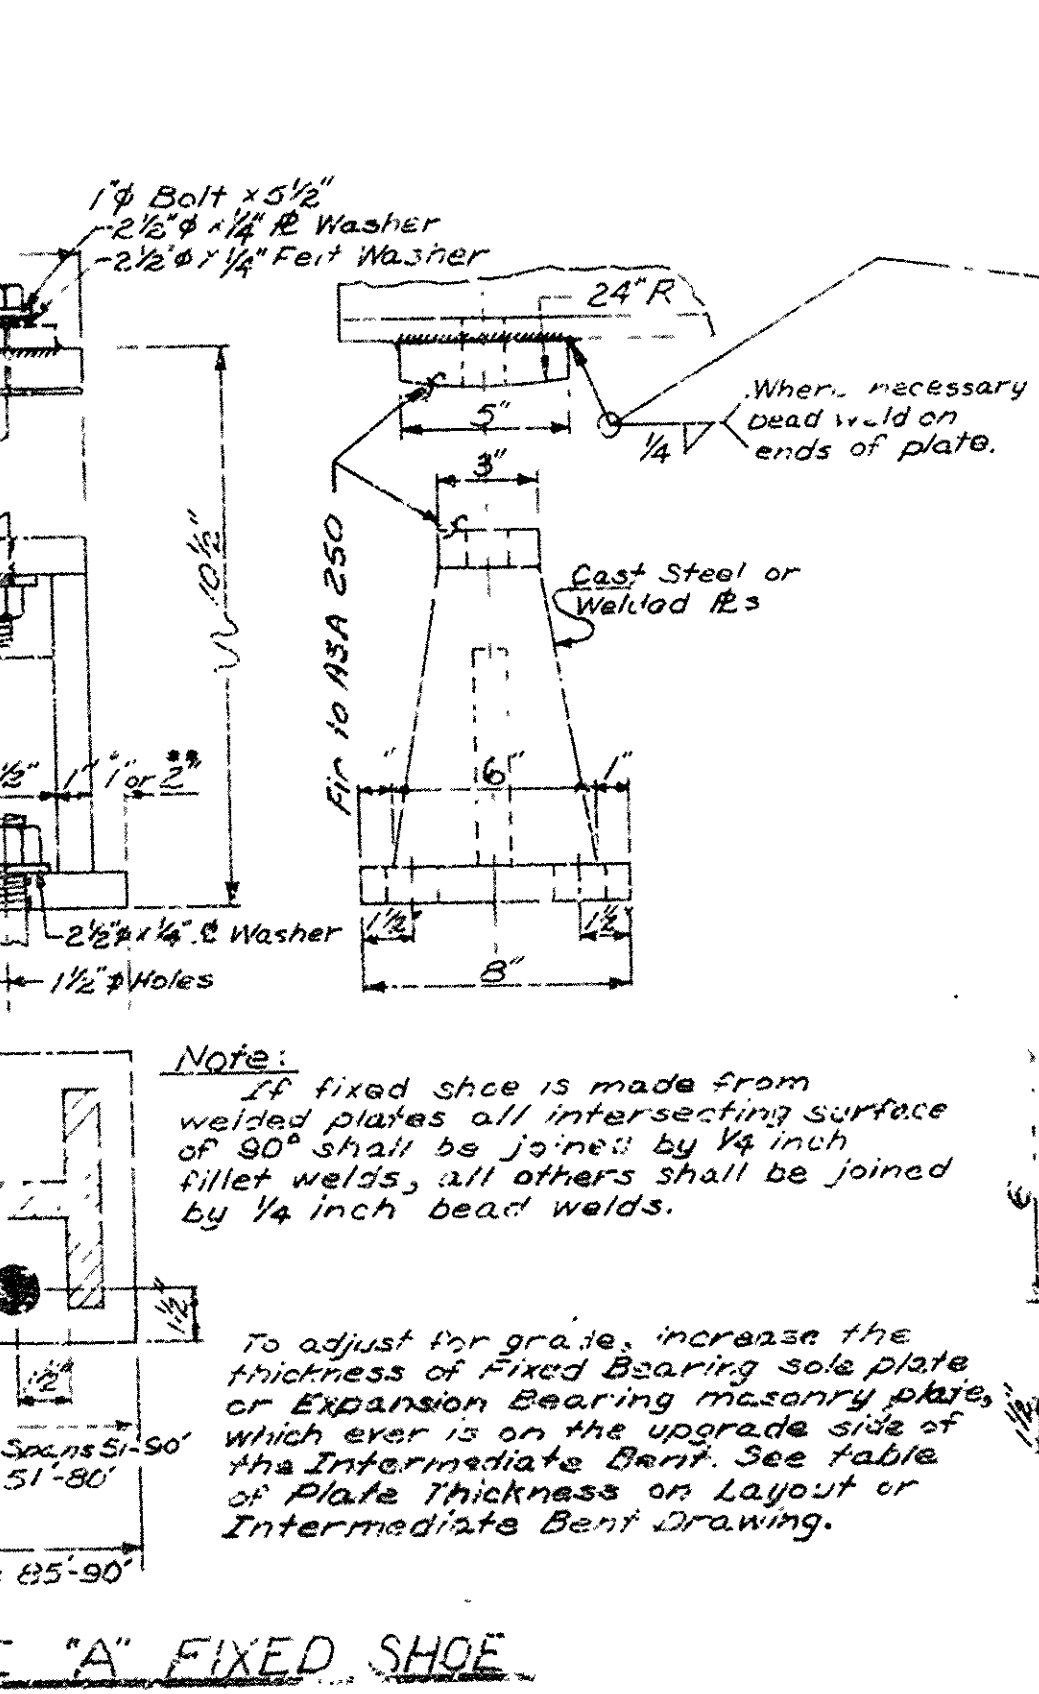 1"ϕ Bolt x 5½"
2½"ϕ x ¼" ⅊ Washer
2½"ϕ x ¼" Felt Washer
24" R
Where necessary
bead weld on
ends of plate.
¼
5"
3"
10½"
Fin to ASA 250
Cast Steel or
Welded ⅊s
½" 1" 1"* or 2"**
" 6" 1"
2½"ϕ x ¼" ⅊ Washer
1½" 1½"
1½"ϕ Holes
8"
Note:
If fixed shoe is made from
welded plates all intersecting surface
of 90° shall be joined by ¼ inch
fillet welds, all others shall be joined
by ¼ inch bead welds.
1½"
To adjust for grade, increase the
thickness of Fixed Bearing sole plate
or Expansion Bearing masonry plate,
which ever is on the upgrade side of
the Intermediate Bent. See table
of Plate Thickness on Layout or
Intermediate Bent Drawing.
1½"
Spans 51'-90'
51'-80'
85'-90'
"A" FIXED SHOE